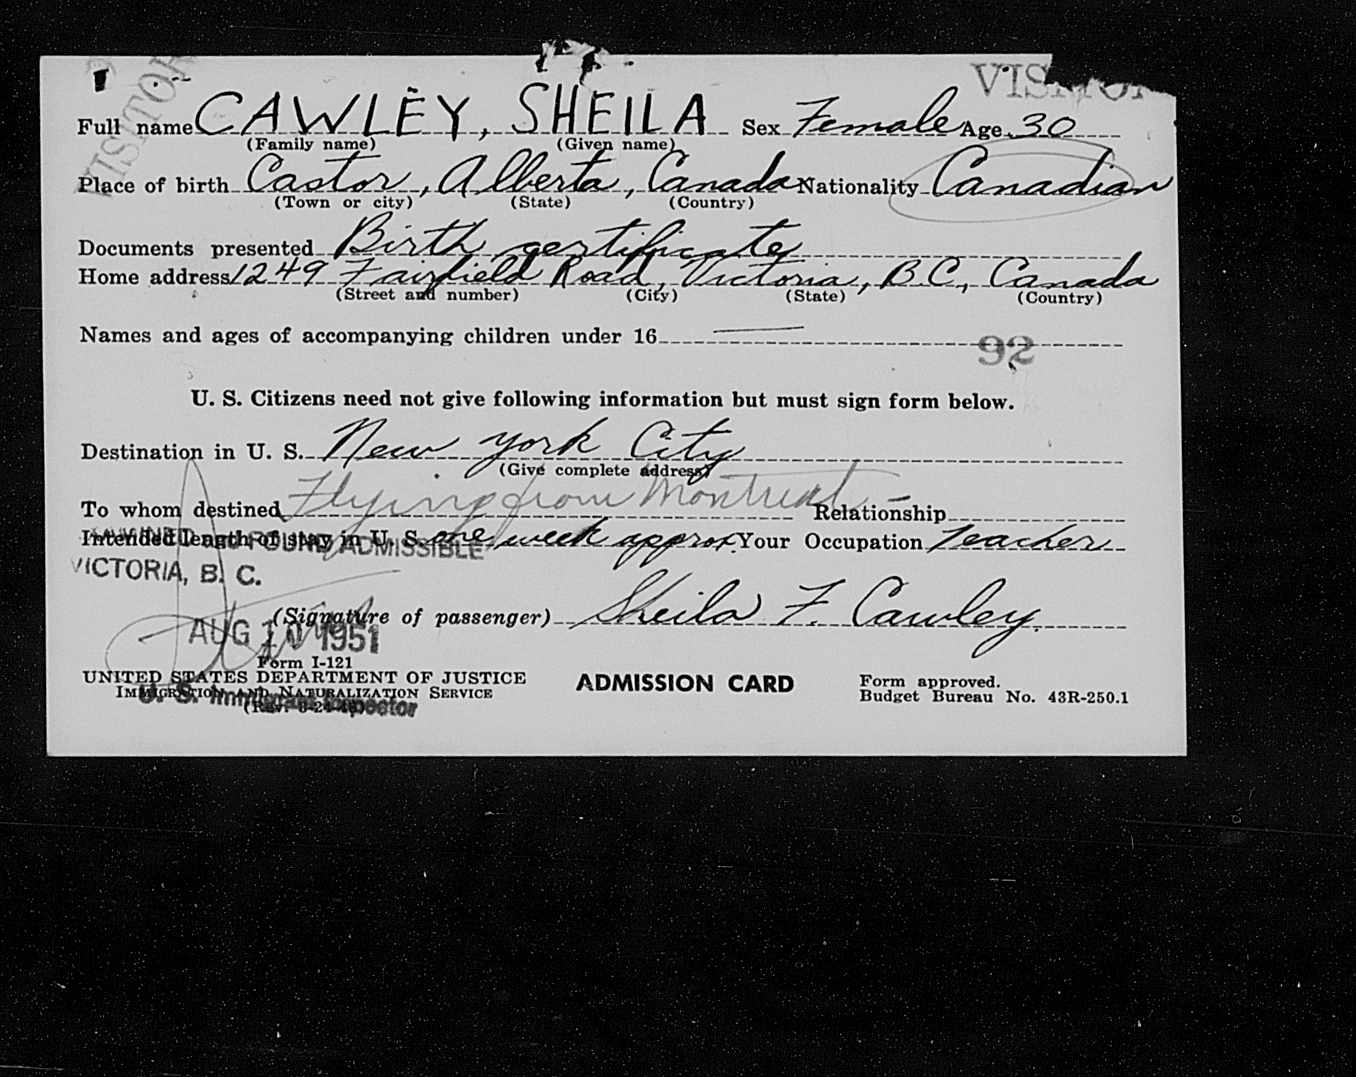 VISITOR VISITOR
Full name CAWLEY, SHEILA Sex Female Age 30
(Family name) (Given name)
Place of birth Castor, Alberta, Canada Nationality Canadian
(Town or city) (State) (Country)
Documents presented Birth certificate
Home address 1249 Fairfield Road, Victoria, B.C., Canada
(Street and number) (City) (State) (Country)
Names and ages of accompanying children under 16 —
92
U. S. Citizens need not give following information but must sign form below.
Destination in U. S. New York City
(Give complete address)
To whom destined Flying from Montreal Relationship —
Intended length of stay in U. S. one week approx. Your Occupation Teacher
EXAMINED and FOUND ADMISSIBLE
VICTORIA, B. C.
(Signature of passenger) Sheila F. Cawley
AUG 10 1951
Form I-121
UNITED STATES DEPARTMENT OF JUSTICE
IMMIGRATION AND NATURALIZATION SERVICE
U. S. Immigrant Inspector
ADMISSION CARD
Form approved.
Budget Bureau No. 43R-250.1